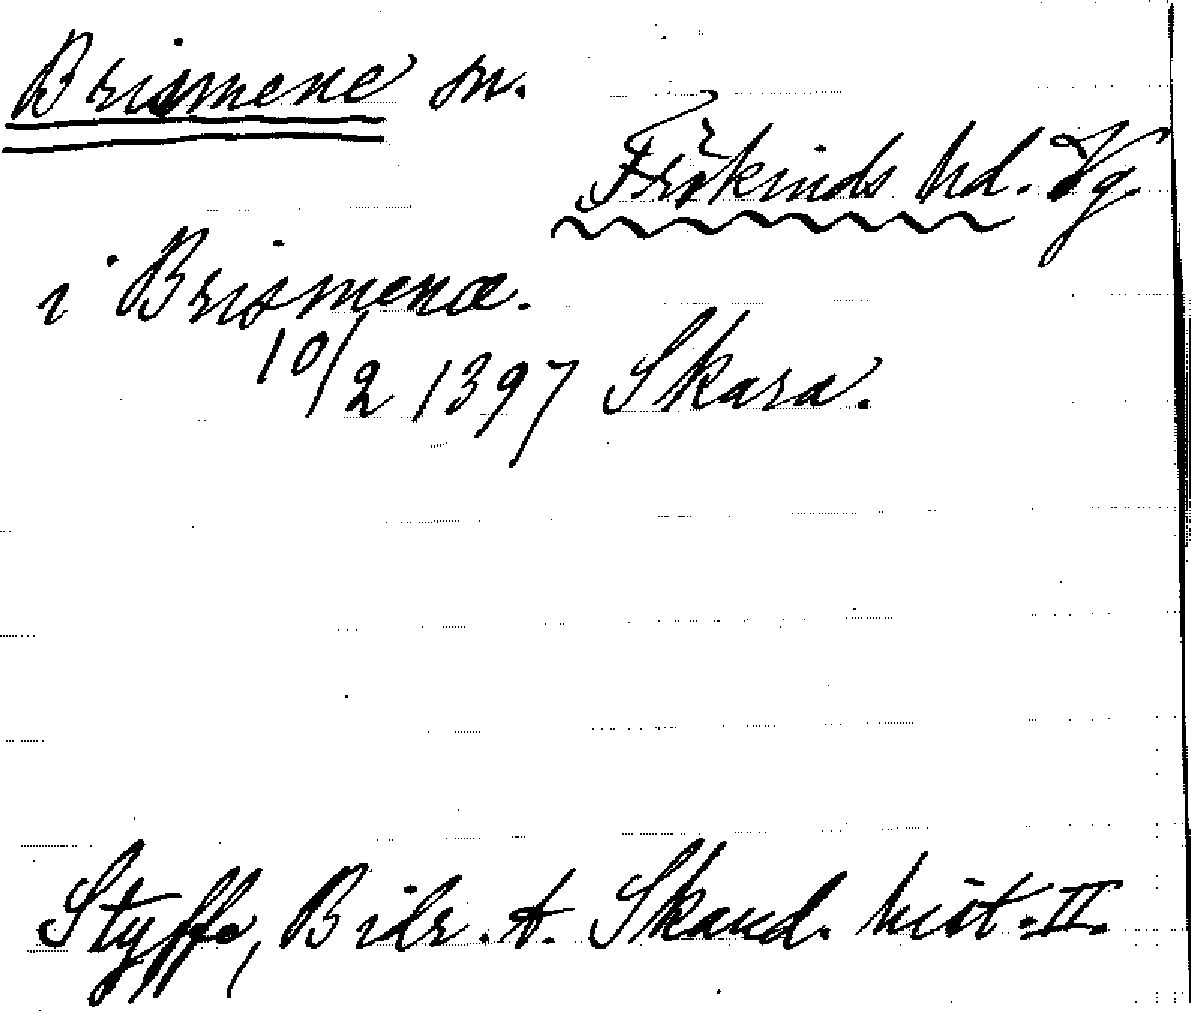 Brismene sn.
Frökinds hd. Vg.
i Brismenæ.
10/2 1397 Skara.
Styffe, Bidr. t. Skand. hist. II.